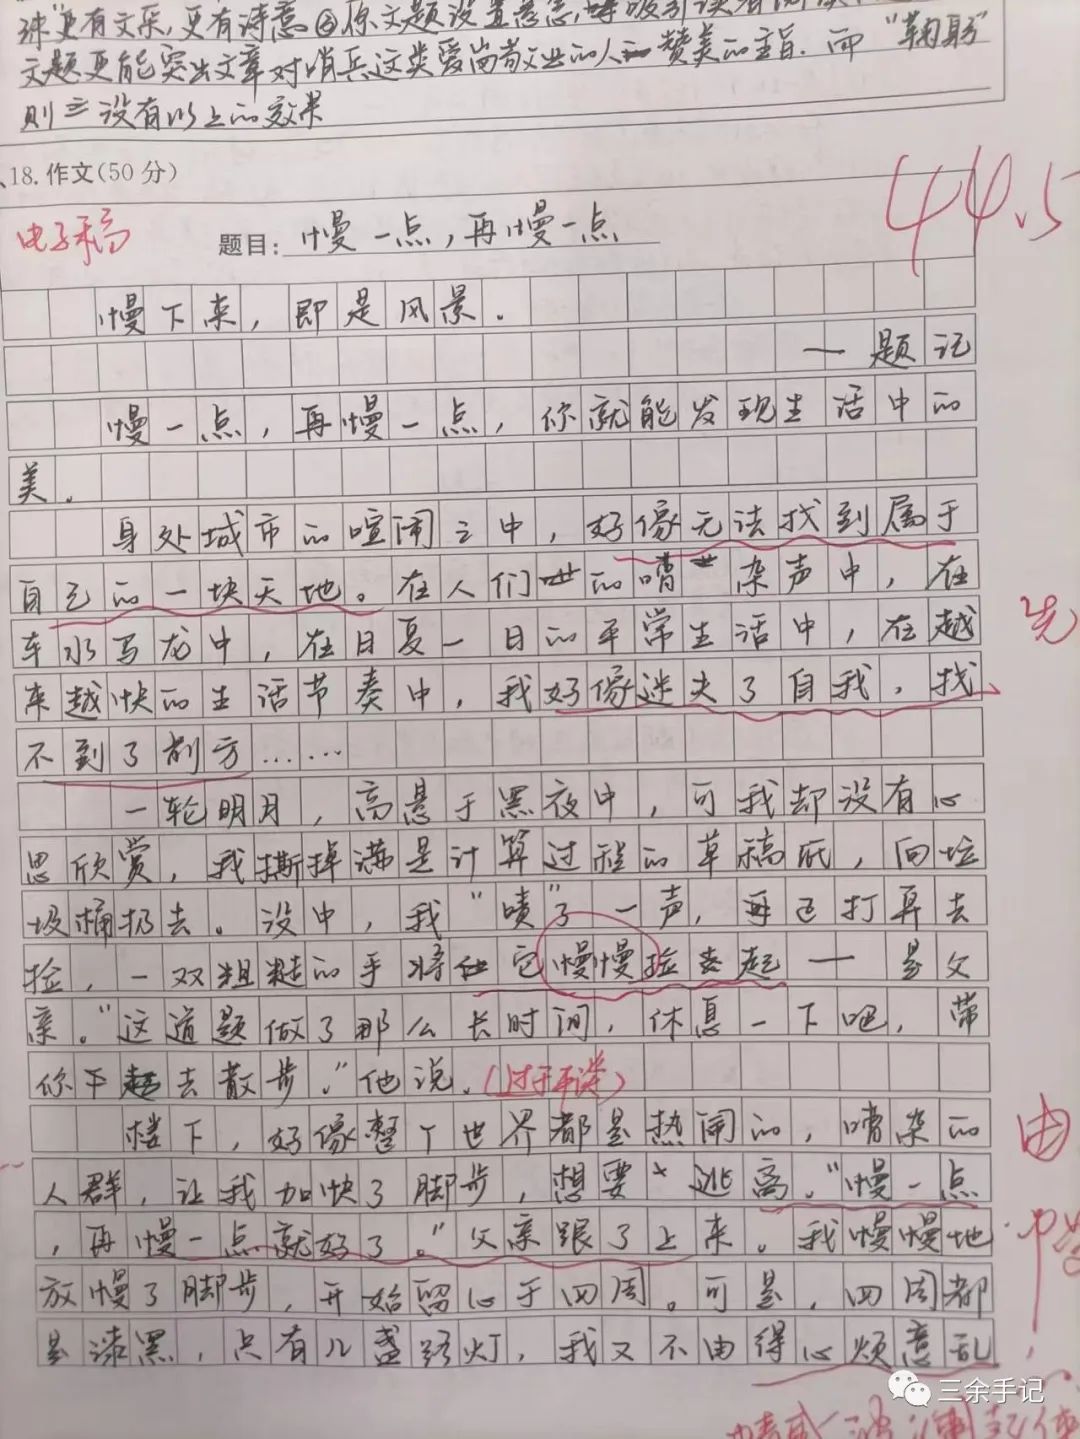 球"更有文采,更有诗意④原文题设置悬念,吸引读者
文题更能突出文章对哨兵这类爱岗敬业的人赞美的主旨.而"鞠躬"
则没有以上的效果
18.作文(50分)
44.5
电子稿
题目:慢一点,再慢一点
慢下来,即是风景.
一题记
慢一点,再慢一点,你就能发现生活中的
美.
身处城市的喧闹之中,好像无法找到属于
自己的一块天地。在人们的嘈杂声中,在
车水马龙中,在日复一日的平常生活中,在越
来越快的生活节奏中,我好像迷失了自我,找
不到了前方……
一轮明月,高悬于黑夜中,可我却没有心
思欣赏,我撕掉满是计算过程的草稿纸,向垃
圾桶扔去。没中,我"啧"了一声,再正打算去
捡,一双粗糙的手将它慢慢捡起一是父
亲。"这道题做了那么长时间,休息一下吧,带
你下去散步."他说.(过于平淡)
楼下,好像整个世界都是热闹的,嘈杂的
人群,让我加快了脚步,想要逃离."慢一点
,再慢一点就好了。"父亲跟了上来。我慢慢地
放慢了脚步,开始留心于四周。可是,四周都
是漆黑,只有几盏路灯,我又不由得心烦意乱
先
由
三余手记